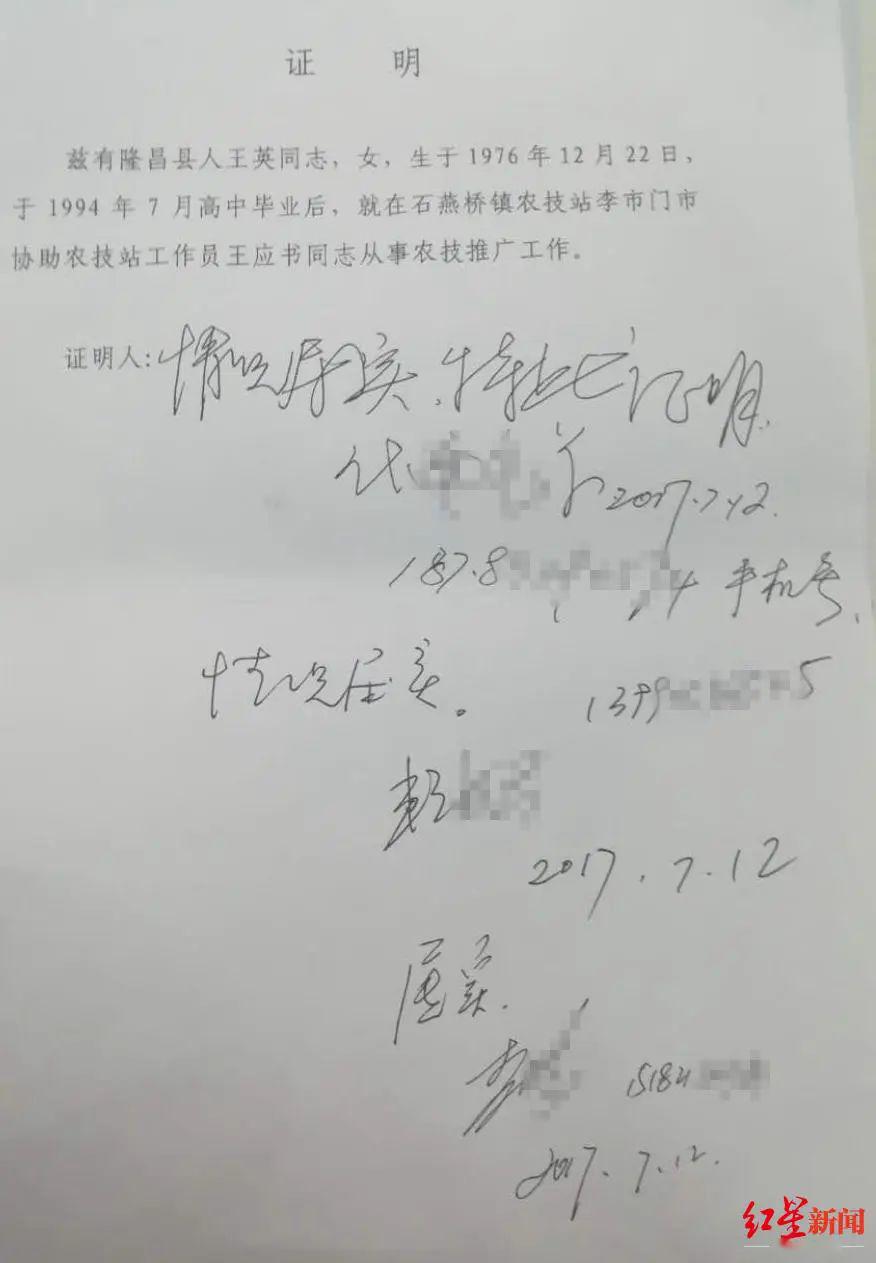 证 明
兹有隆昌县人王英同志，女，生于1976年12月22日，
于1994年7月高中毕业后，就在石燕桥镇农技站李市门市
协助农技站工作员王应书同志从事农技推广工作。
证明人：情况属实，特此证明
代
2017.7.12.
187.8 4 手机号
情况属实。 1399 5
2017.7.12
属实.
李 15184
2017.7.12.
红星新闻